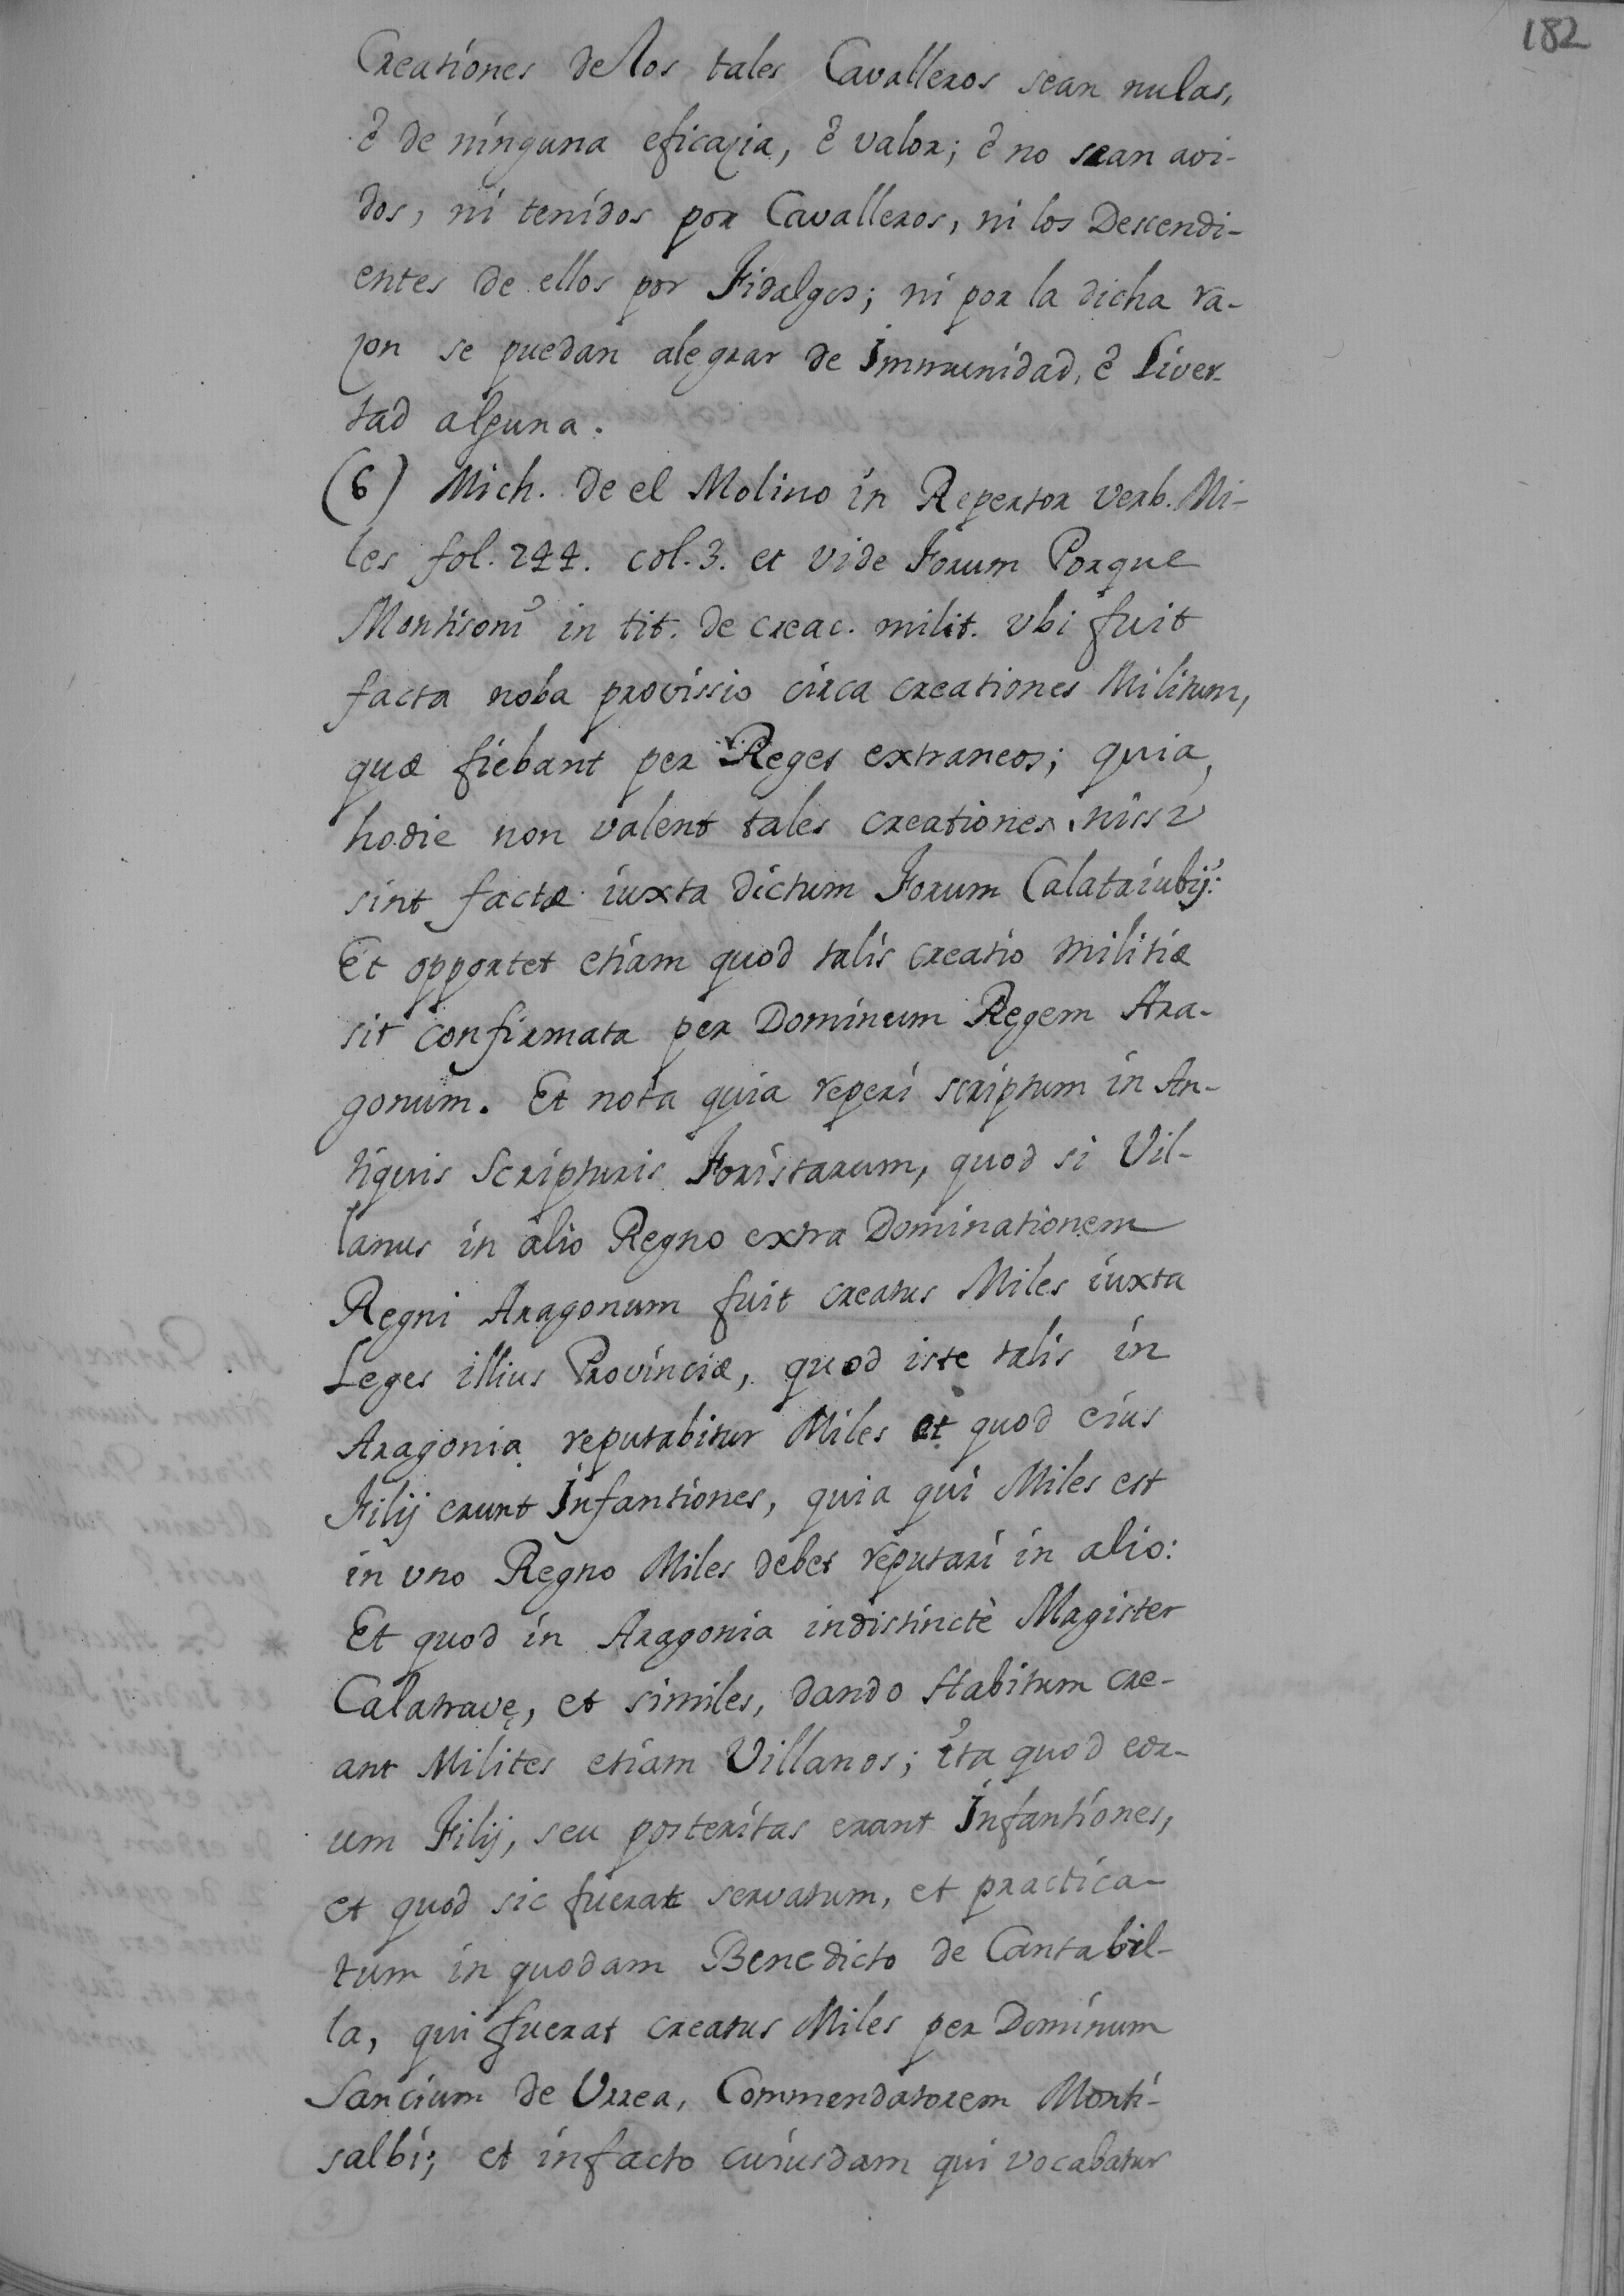 182
Creationes de los tales Cavalleros sean nulas,
è de ninguna eficazia, è valor; è no sean avi-
dos, ni tenidos por Cavalleros, ni los Descendi-
entes de ellos por Fidalgos; ni por la dicha ra-
zon se puedan alegrar de Immunidad, è Liver-
tad alguna.
(6) Mich. de el Molino in Repertor verb. Mi-
les fol. 244. col. 3. et vide Forum Porque
Montisoni in tit. de creac. milit. vbi fuit
facta noba provissio circa creationes Militum,
quæ fiebant per Reges extraneos; quia,
hodie non valent tales creationes, nissi
sint factæ iuxta dictum Forum Calataiubij:
Et opportet etiam quod talis creatio militiæ
sit confirmata per Dominum Regem Ara-
gonum. Et nota quia reperi scriptum in An-
tiquis Scripturis Foristarum, quod si Vil-
lanus in alio Regno extra Dominationem
Regni Aragonum fuit creatus Miles iuxta
Leges illius Provinciæ, quod iste talis in
Aragonia reputabitur Miles et quod eius
Filij erunt Infantiones, quia qui Miles est
in vno Regno Miles debet reputari in alio:
Et quod in Aragonia indistinctè Magister
Calatravę, et similes, dando Habitum cre-
ant Milites etiam Villanos; ita quod eor-
um Filij, seu posteritas erant Infantiones,
et quod sic fuerat servatum, et practica-
tum in quodam Benedicto de Cantabil-
la, qui fuerat creatus Miles per Dominum
Sancium de Vrrea, Commendatorem Monti-
salbi; et infacto cuiusdam qui vocabatur